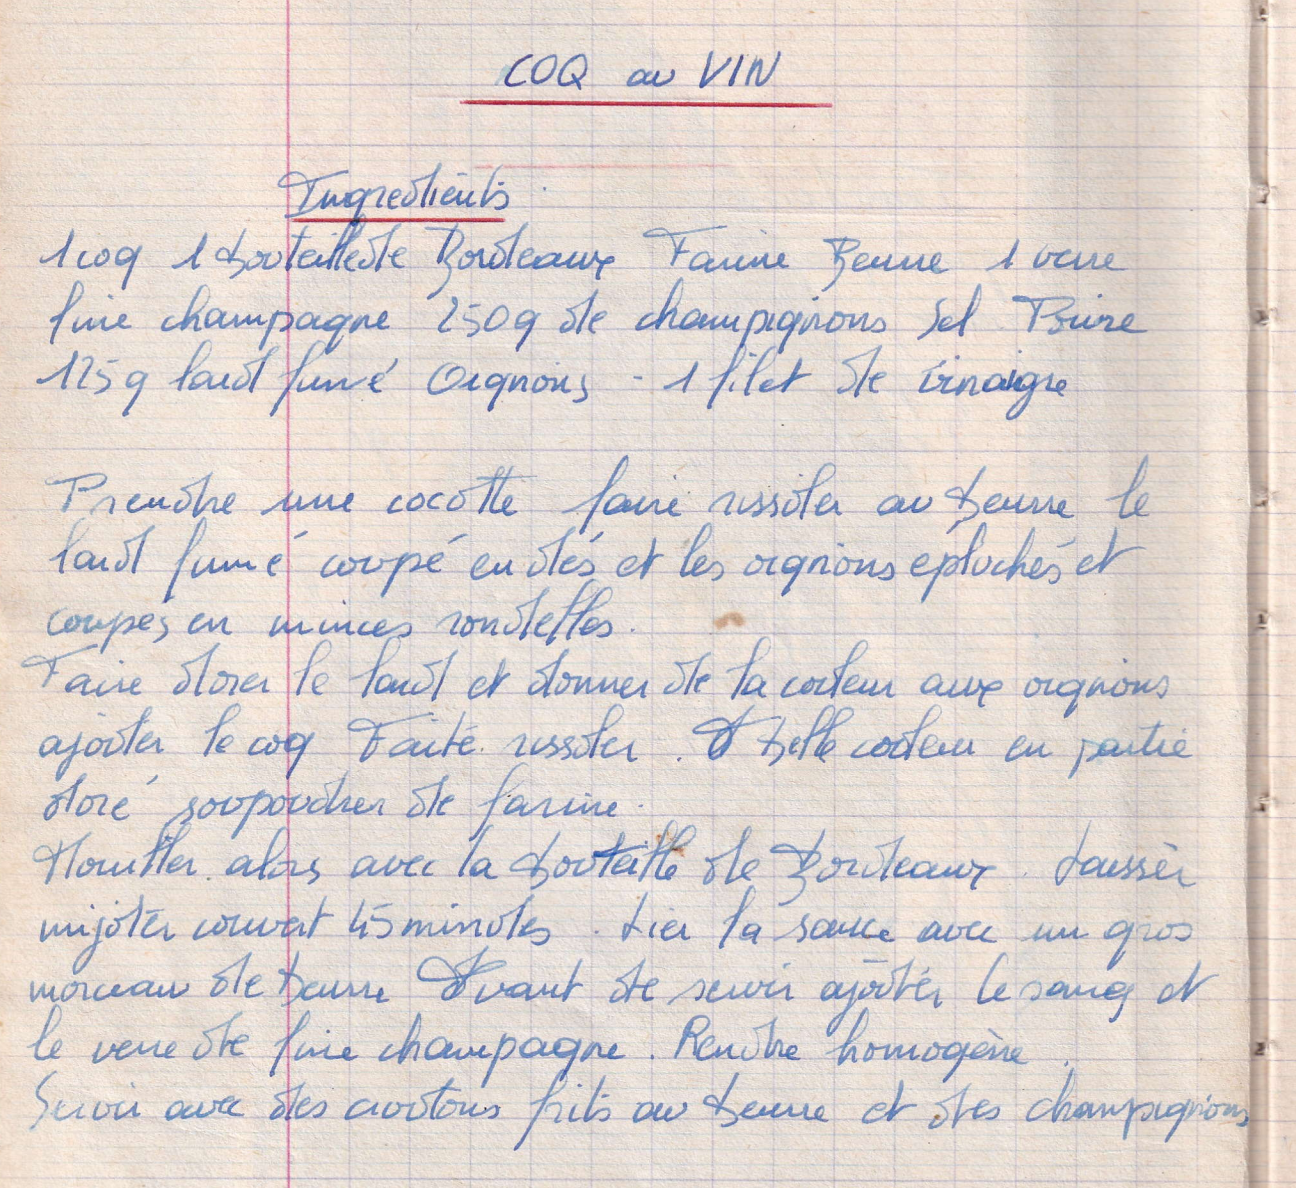 COQ au VIN
Ingredients
1 coq 1 bouteille de Bordeaux Farine Beurre 1 verre
fine champagne 250g de champignons Sel Poivre
125g lard fumé Oignons - 1 filet de vinaigre
Prendre une cocotte faire rissoler au beurre le
lard fumé coupé en dés et les oignons épluchés et
coupés en minces rondelles.
Faire dorer le lard et donner de la couleur aux oignons
ajouter le coq Faite rissoler. A belle couleur en partie
doré soupoudrer de farine.
Mouiller alors avec la bouteille de Bordeaux. Laisser
mijoter couvert 45 minutes. Lier la sauce avec un gros
morceau de beurre Avant de servir ajouter le sang et
le verre de fine champagne. Rendre homogène.
Servir avec des croutons frits au beurre et des champignons